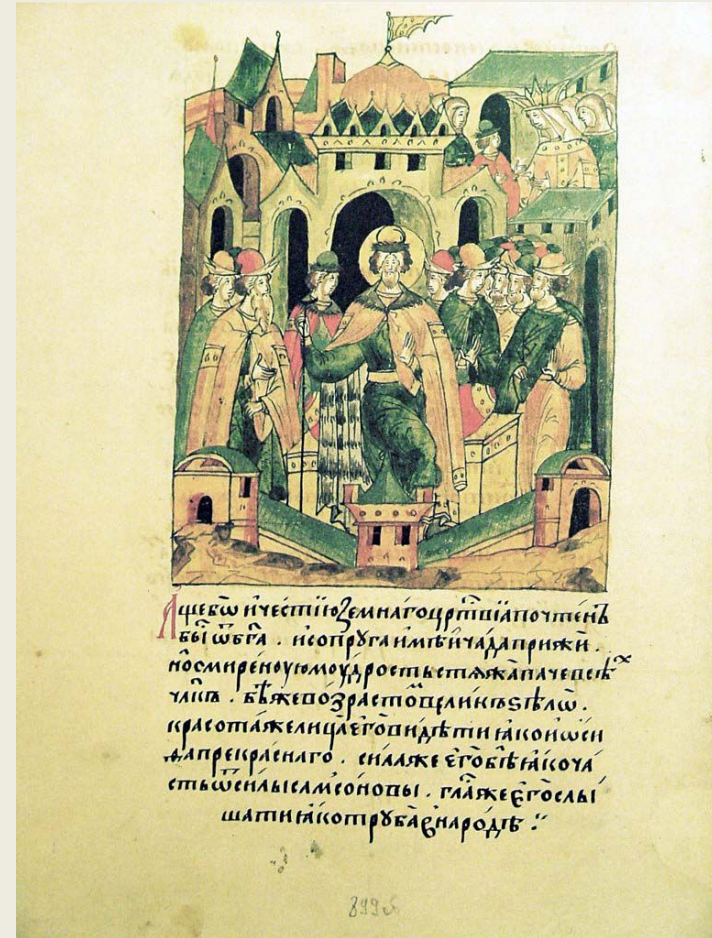 Аще бѡ и честїю земнаго црⷭ҇твїа почтенъ
бы́ ѿ бг҃а . и сопруга имѣ́ и ча́да прижи́ .
но смире́ноую моу́дрость стѧжа̀ паче всѣⷯ
чл҃къ . бѣ́ же во́зрастоⷨ вели́къ ѕѣлѡ̀ .
красота́ же лица̀ его̀ ви́дѣти ꙗ́ко иѡ́си
фа прекра́снаго . си́ла же єго̀ бѣ̀ ꙗ́ко ча́
сть ѿ си́лы самсо́новы . гла́ же єго̀ слы́
шати ꙗ́ко труба̀ в наро́дѣ :·
899 об